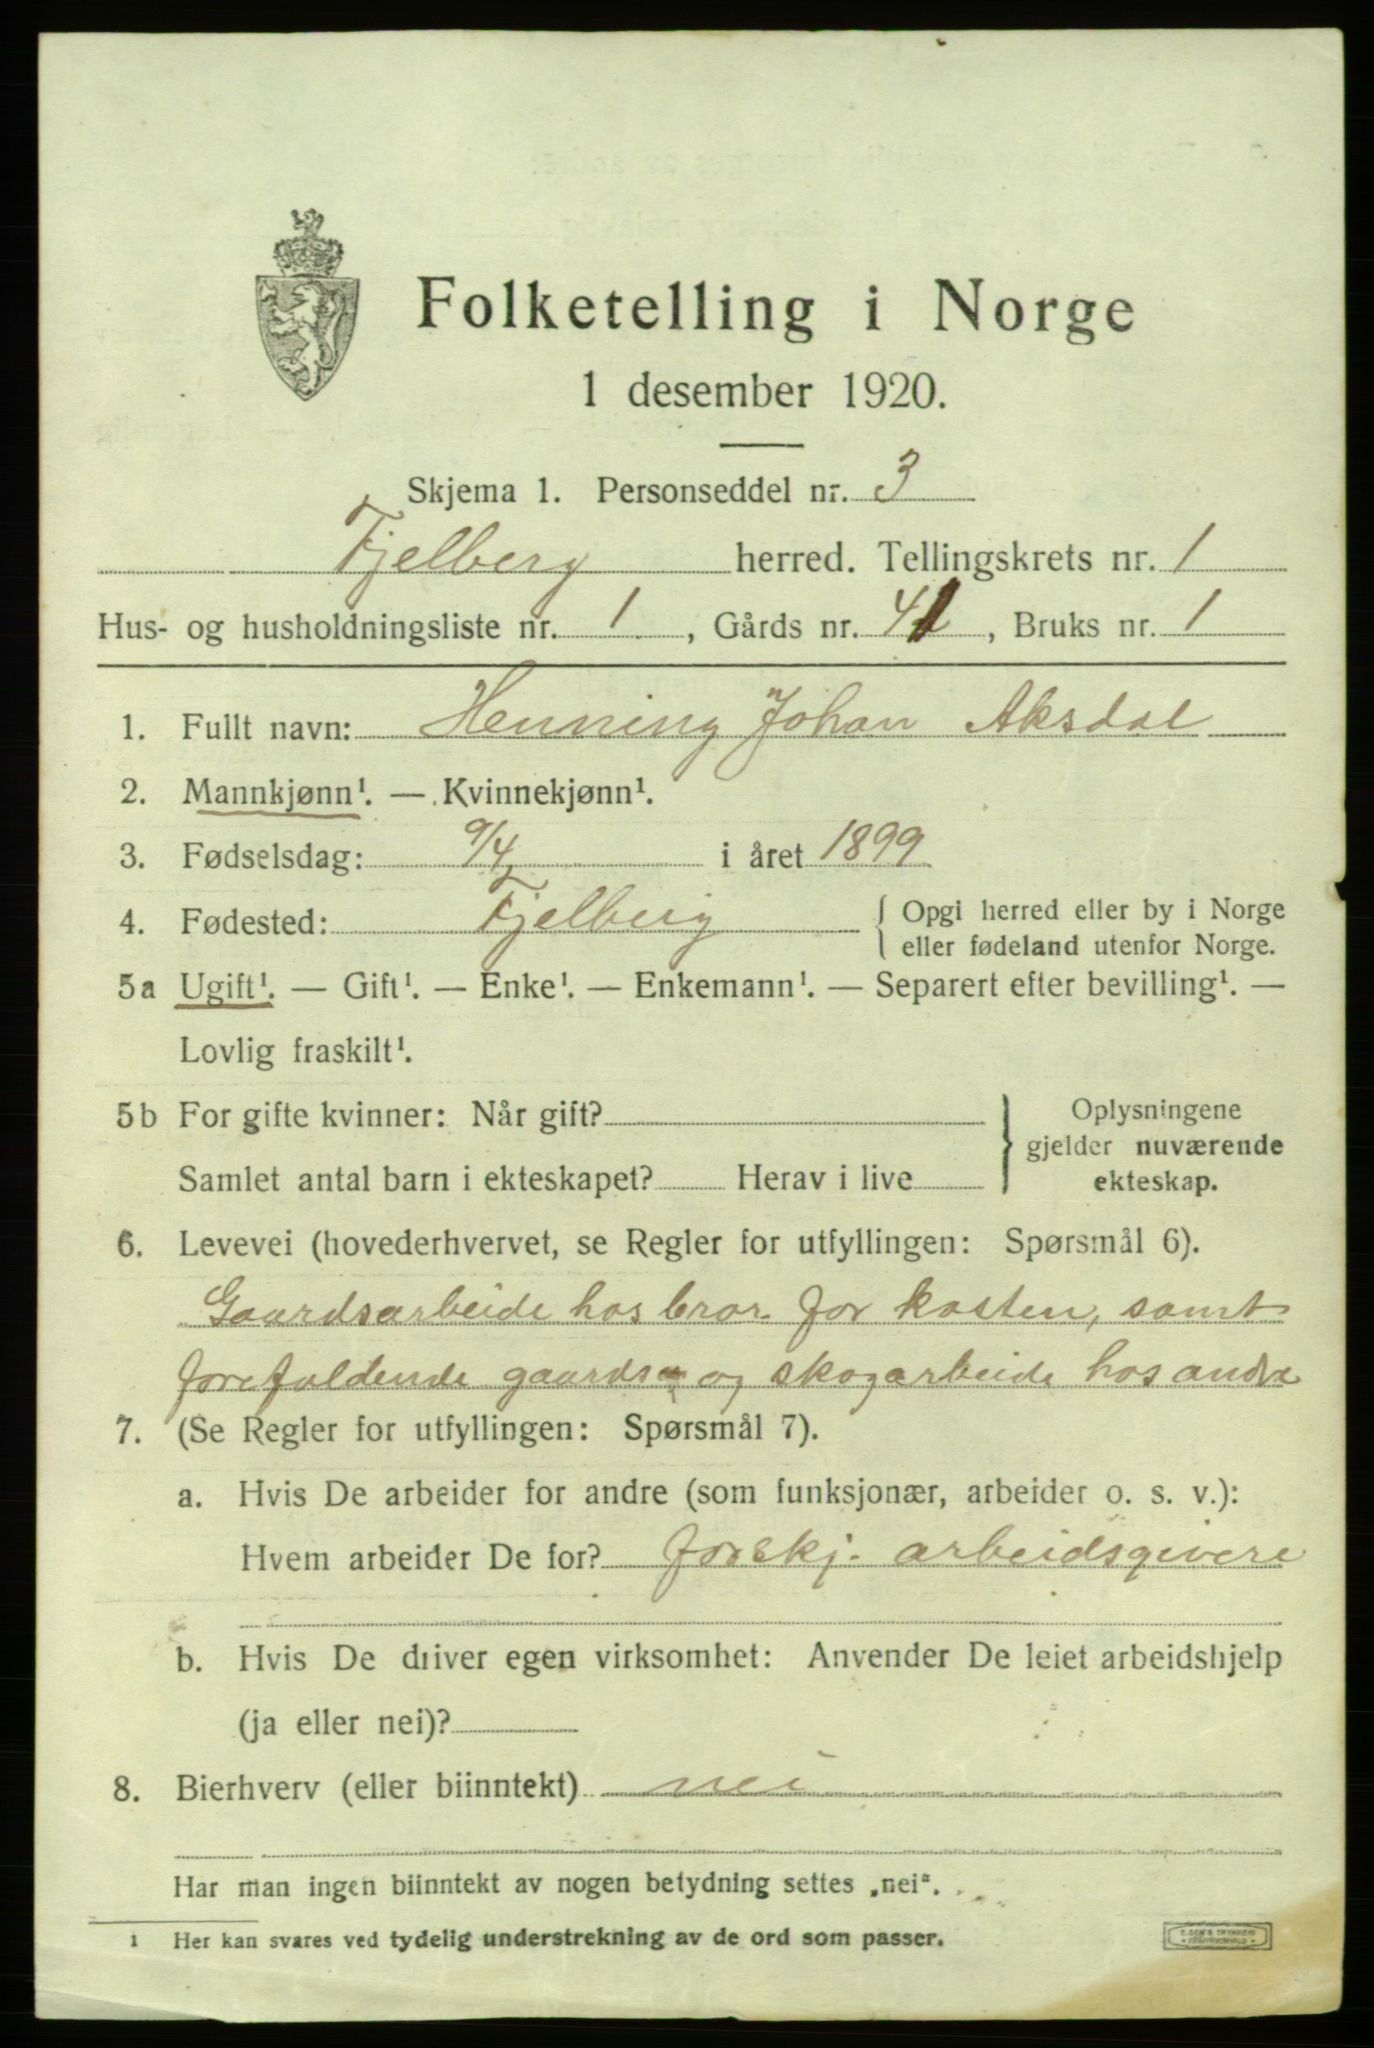 Folketelling i Norge
1 desember 1920.
Skjema 1. Personseddel nr. 3
Fjelberg herred. Tellingskrets nr. 1
Hus- og husholdningsliste nr. 1, Gårds nr. 41, Bruks nr. 1
1. Fullt navn: Henning Johan Aksdal
2. Mannkjønn¹. — Kvinnekjønn¹.
3. Fødselsdag: 9/4 i året 1899
4. Fødested: Fjelberg { Opgi herred eller by i Norge
eller fødeland utenfor Norge.
5a Ugift¹. — Gift¹. — Enke¹. — Enkemann¹. — Separert efter bevilling¹. —
Lovlig fraskilt¹.
5b For gifte kvinner: Når gift?
Samlet antal barn i ekteskapet? Herav i live
} Oplysningene
gjelder nuværende
ekteskap.
6. Levevei (hovederhvervet, se Regler for utfyllingen: Spørsmål 6).
Gaardsarbeide hos bror for kosten, samt
forefaldende gaards- og skogarbeide hos andre
7. (Se Regler for utfyllingen: Spørsmål 7).
a. Hvis De arbeider for andre (som funksjonær, arbeider o. s. v.):
Hvem arbeider De for? forskj. arbeidsgivere
b. Hvis De driver egen virksomhet: Anvender De leiet arbeidshjelp
(ja eller nei)?
8. Bierhverv (eller biinntekt) nei
Har man ingen biinntekt av nogen betydning settes „nei".
1 Her kan svares ved tydelig understrekning av de ord som passer.